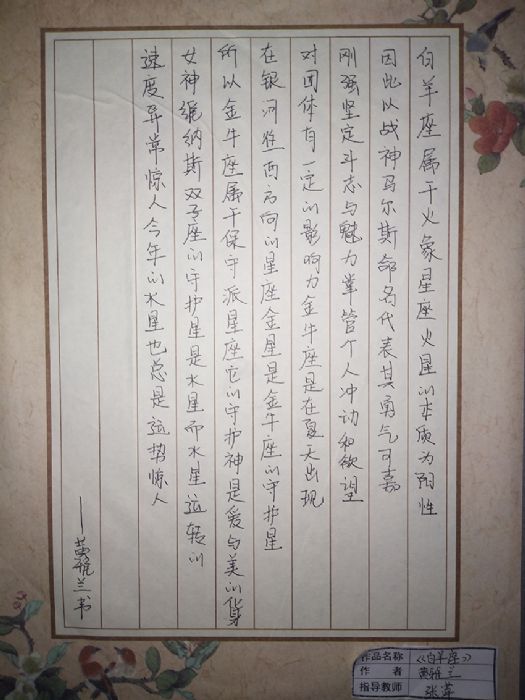 白羊座属于火象星座火星的本质为阳性
因此以战神马尔斯命名代表其勇气可嘉
刚强坚定斗志与魅力掌管个人冲动和欲望
对团体有一定的影响力金牛座是在夏天出现
在银河些西方向的星座金星是金牛座的守护星
所以金牛座属于保守派星座它的守护神是爱与美的化身
女神维纳斯双子座的守护星是水星而水星运转的
速度异常惊人今年的水星也总是运势惊人
——黄雅兰书
作品名称 《白羊座》
作者 黄雅兰
指导教师 张